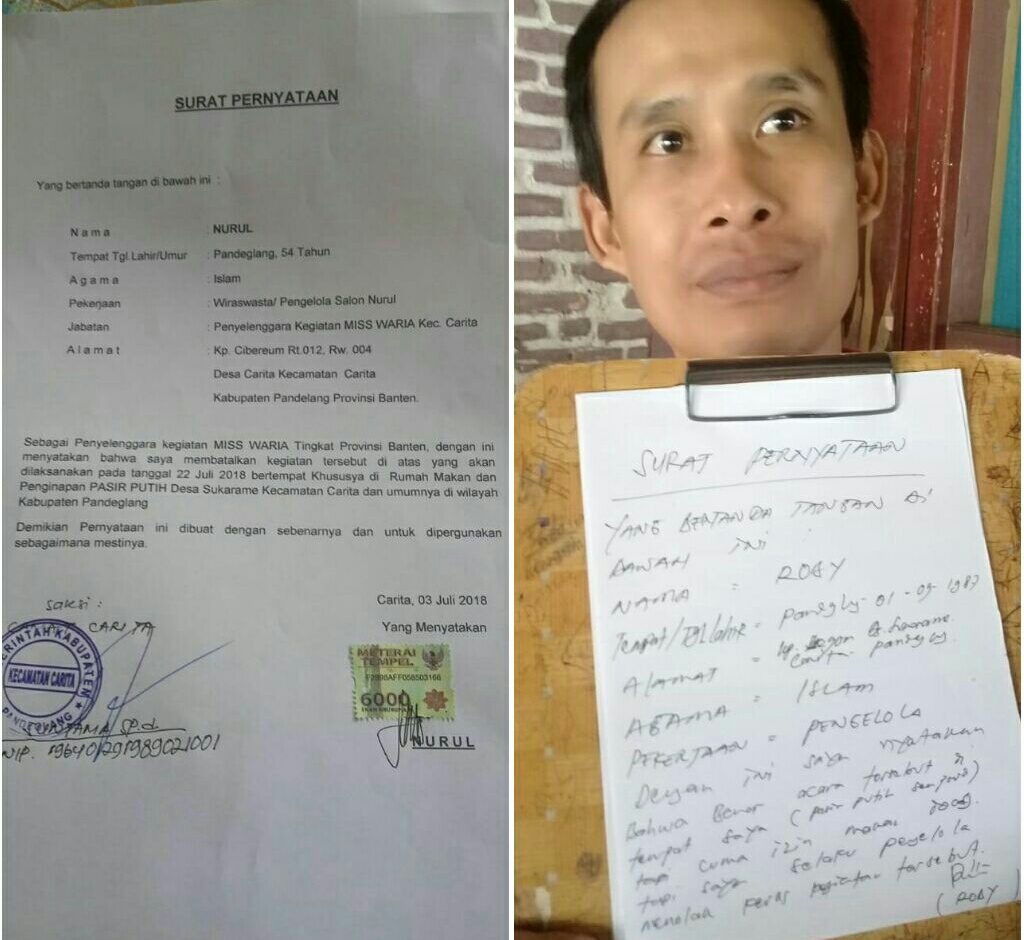 SURAT PERNYATAAN
Yang bertanda tangan di bawah ini :
Nama : NURUL
Tempat Tgl.Lahir/Umur : Pandeglang, 54 Tahun
Agama : Islam
Pekerjaan : Wiraswasta/ Pengelola Salon Nurul
Jabatan : Penyelenggara Kegiatan MISS WARIA Kec. Carita
Alamat : Kp. Cibereum Rt.012, Rw. 004
Desa Carita Kecamatan Carita
Kabupaten Pandelang Provinsi Banten.
Sebagai Penyelenggara kegiatan MISS WARIA Tingkat Provinsi Banten, dengan ini
menyatakan bahwa saya membatalkan kegiatan tersebut di atas yang akan
dilaksanakan pada tanggal 22 Juli 2018 bertempat Khususya di Rumah Makan dan
Penginapan PASIR PUTIH Desa Sukarame Kecamatan Carita dan umumnya di wilayah
Kabupaten Pandeglang
Demikian Pernyataan ini dibuat dengan sebenarnya dan untuk dipergunakan
sebagaimana mestinya.
Carita, 03 Juli 2018
Yang Menyatakan
saksi :
CARITA
KECAMATAN CARITA
METERAI
TEMPEL
6000
NURUL
NIP. 196401291989021001
SURAT PERNYATAAN
YANG BERTANDA TANGAN di
BAWAH INI :
NAMA = ROBY
Tempat/TGL lahir =
ALAMAT =
AGAMA = ISLAM
PEKERJAAN = PENGELOLA
Dengan ini saya nyatakan
Bahwa Benar acara tersebut di
tempat saya (pasir putih
tapi cuma izin makan
tapi saya selaku pengelola
menolak keras kegiatan tersebut.
(ROBY)